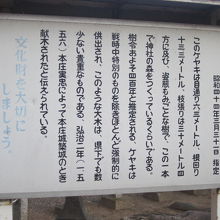 昭和四十年三月三十日 指定
このケヤキは目通り六・三メートル、根回り
十三・三メートル、枝張りは三十メートル四
方に及び、姿態もみごとな樹で、この一本
で神社の森をつくっているくらいである。
樹令およそ四百年と推定される。ケヤキは
戦時中特別のものを除きほとんど強制的に
供出され、このような大木は、県下でも数
少ない貴重なものである。弘治二年(一五
五六)本庄実忠によって本庄城築城のとき
献木されたと伝えられている。
文化財を大切に
しましょう。